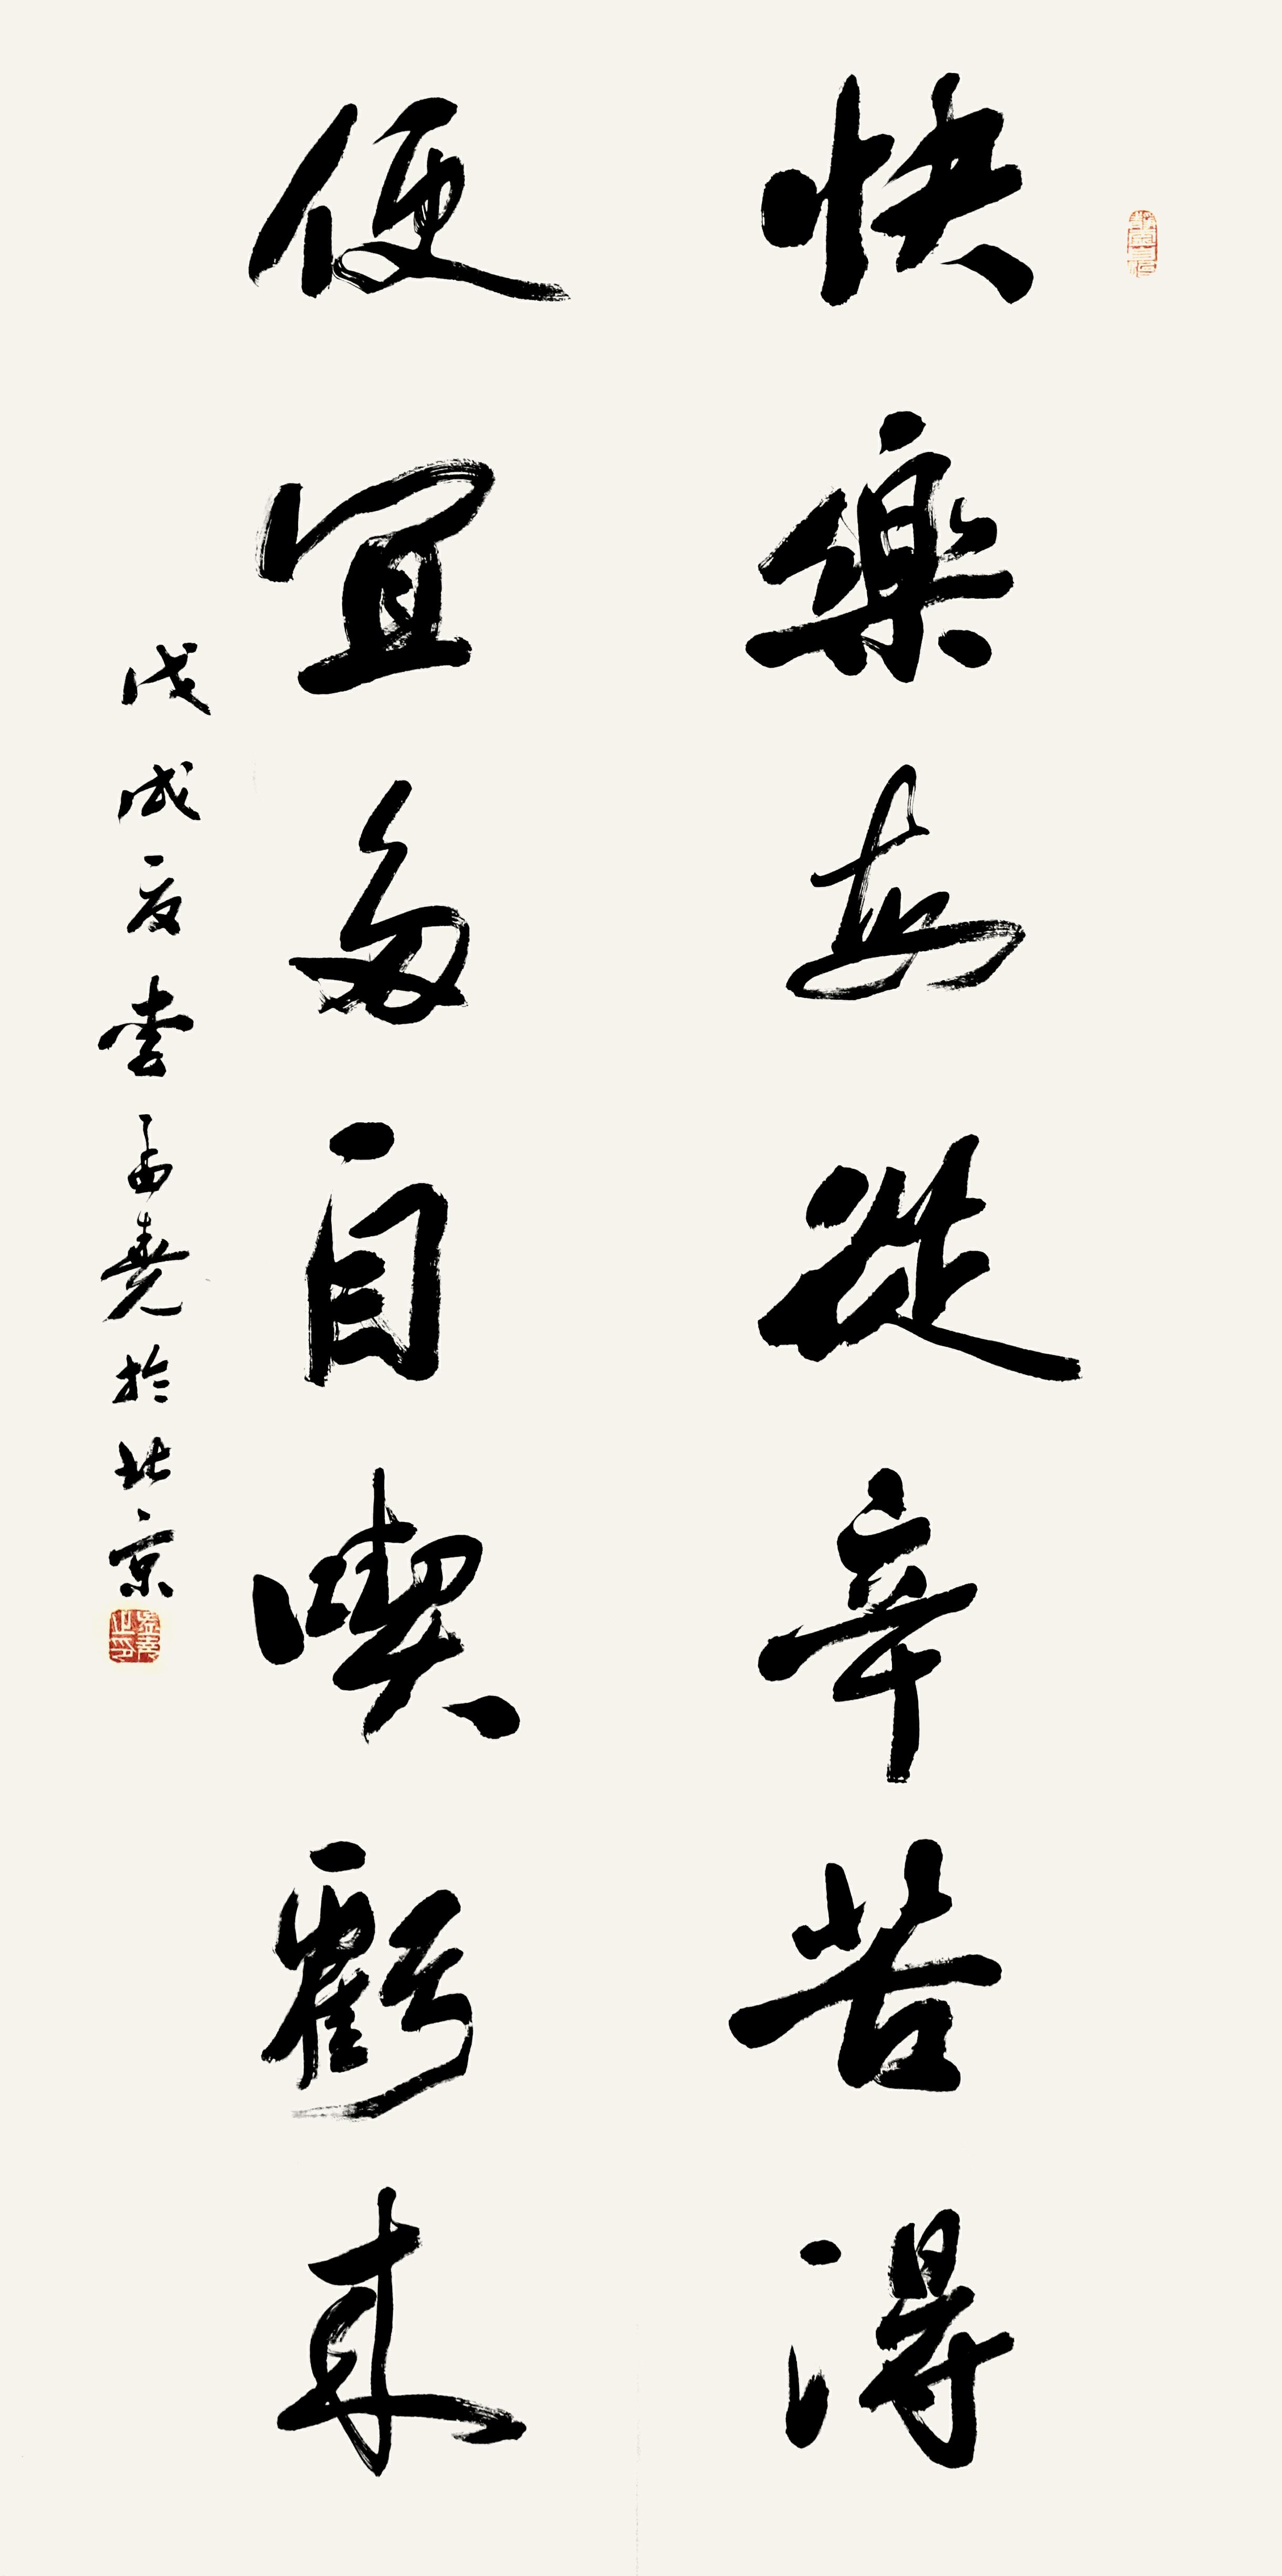 快樂每從辛苦得
便宜多自喫虧來
戊戌夏李孟堯於北京